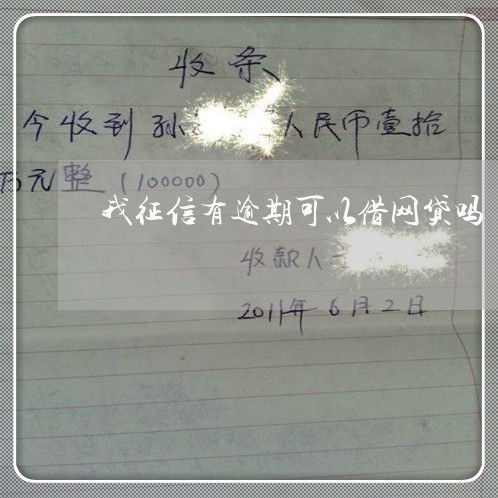 收条
今收到孙 人民币壹拾
万元整（100000）
我征信有逾期可以借网贷吗
收款人
2011年6月2日